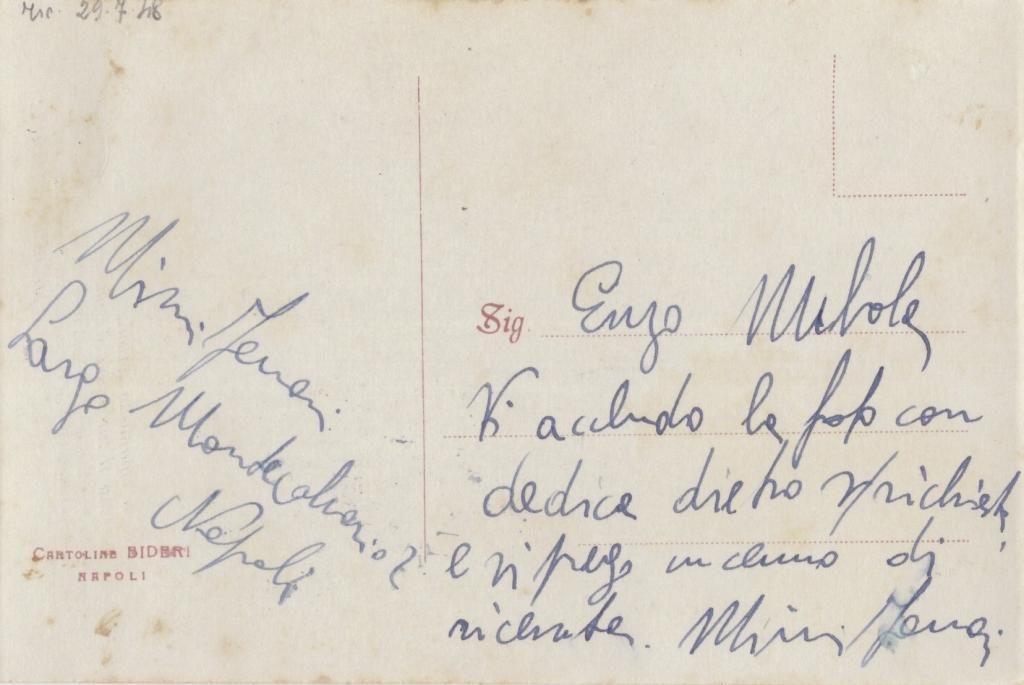 ric. 29.7.48
Mimì Ferrari
Largo Montecalvario 2
Napoli
CARTOLINE BIDERI
NAPOLI
Sig. Enzo
Vi accludo la foto con
dedica dietro richiesta
e vi prego un cenno di
ricevuta. Mimì Ferrari